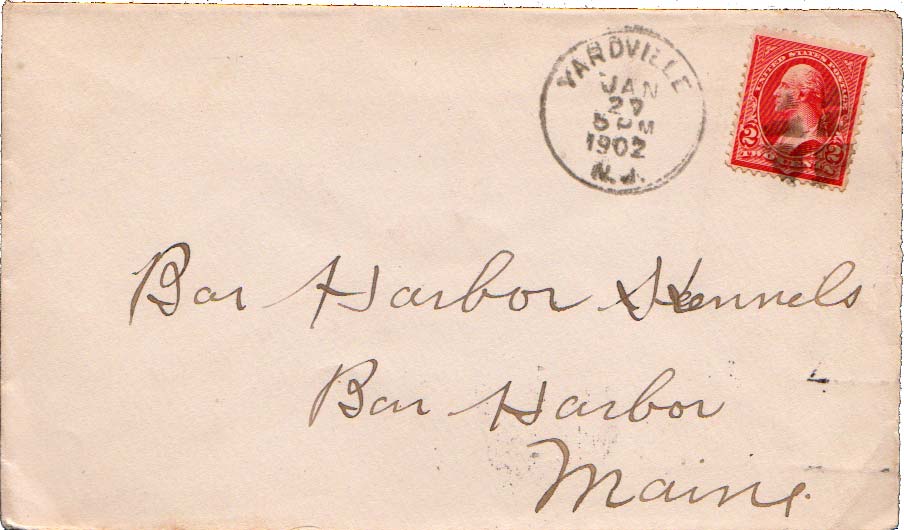 YARDVILLE
JAN
27
5 PM
1902
N.J.
UNITED STATES POSTAGE
2 2
Bar Harbor Kennels
Bar Harbor
Maine.